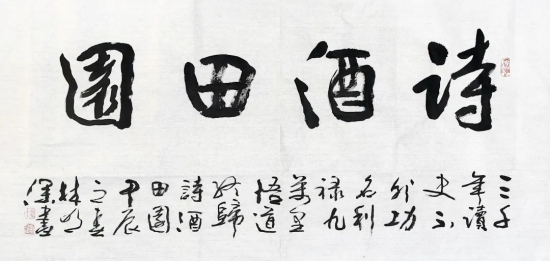 詩酒田園
三千
年讀
史不
外功
名利
祿九
萬里
悟道
終歸
詩酒
田園
甲辰
之春
林
深書